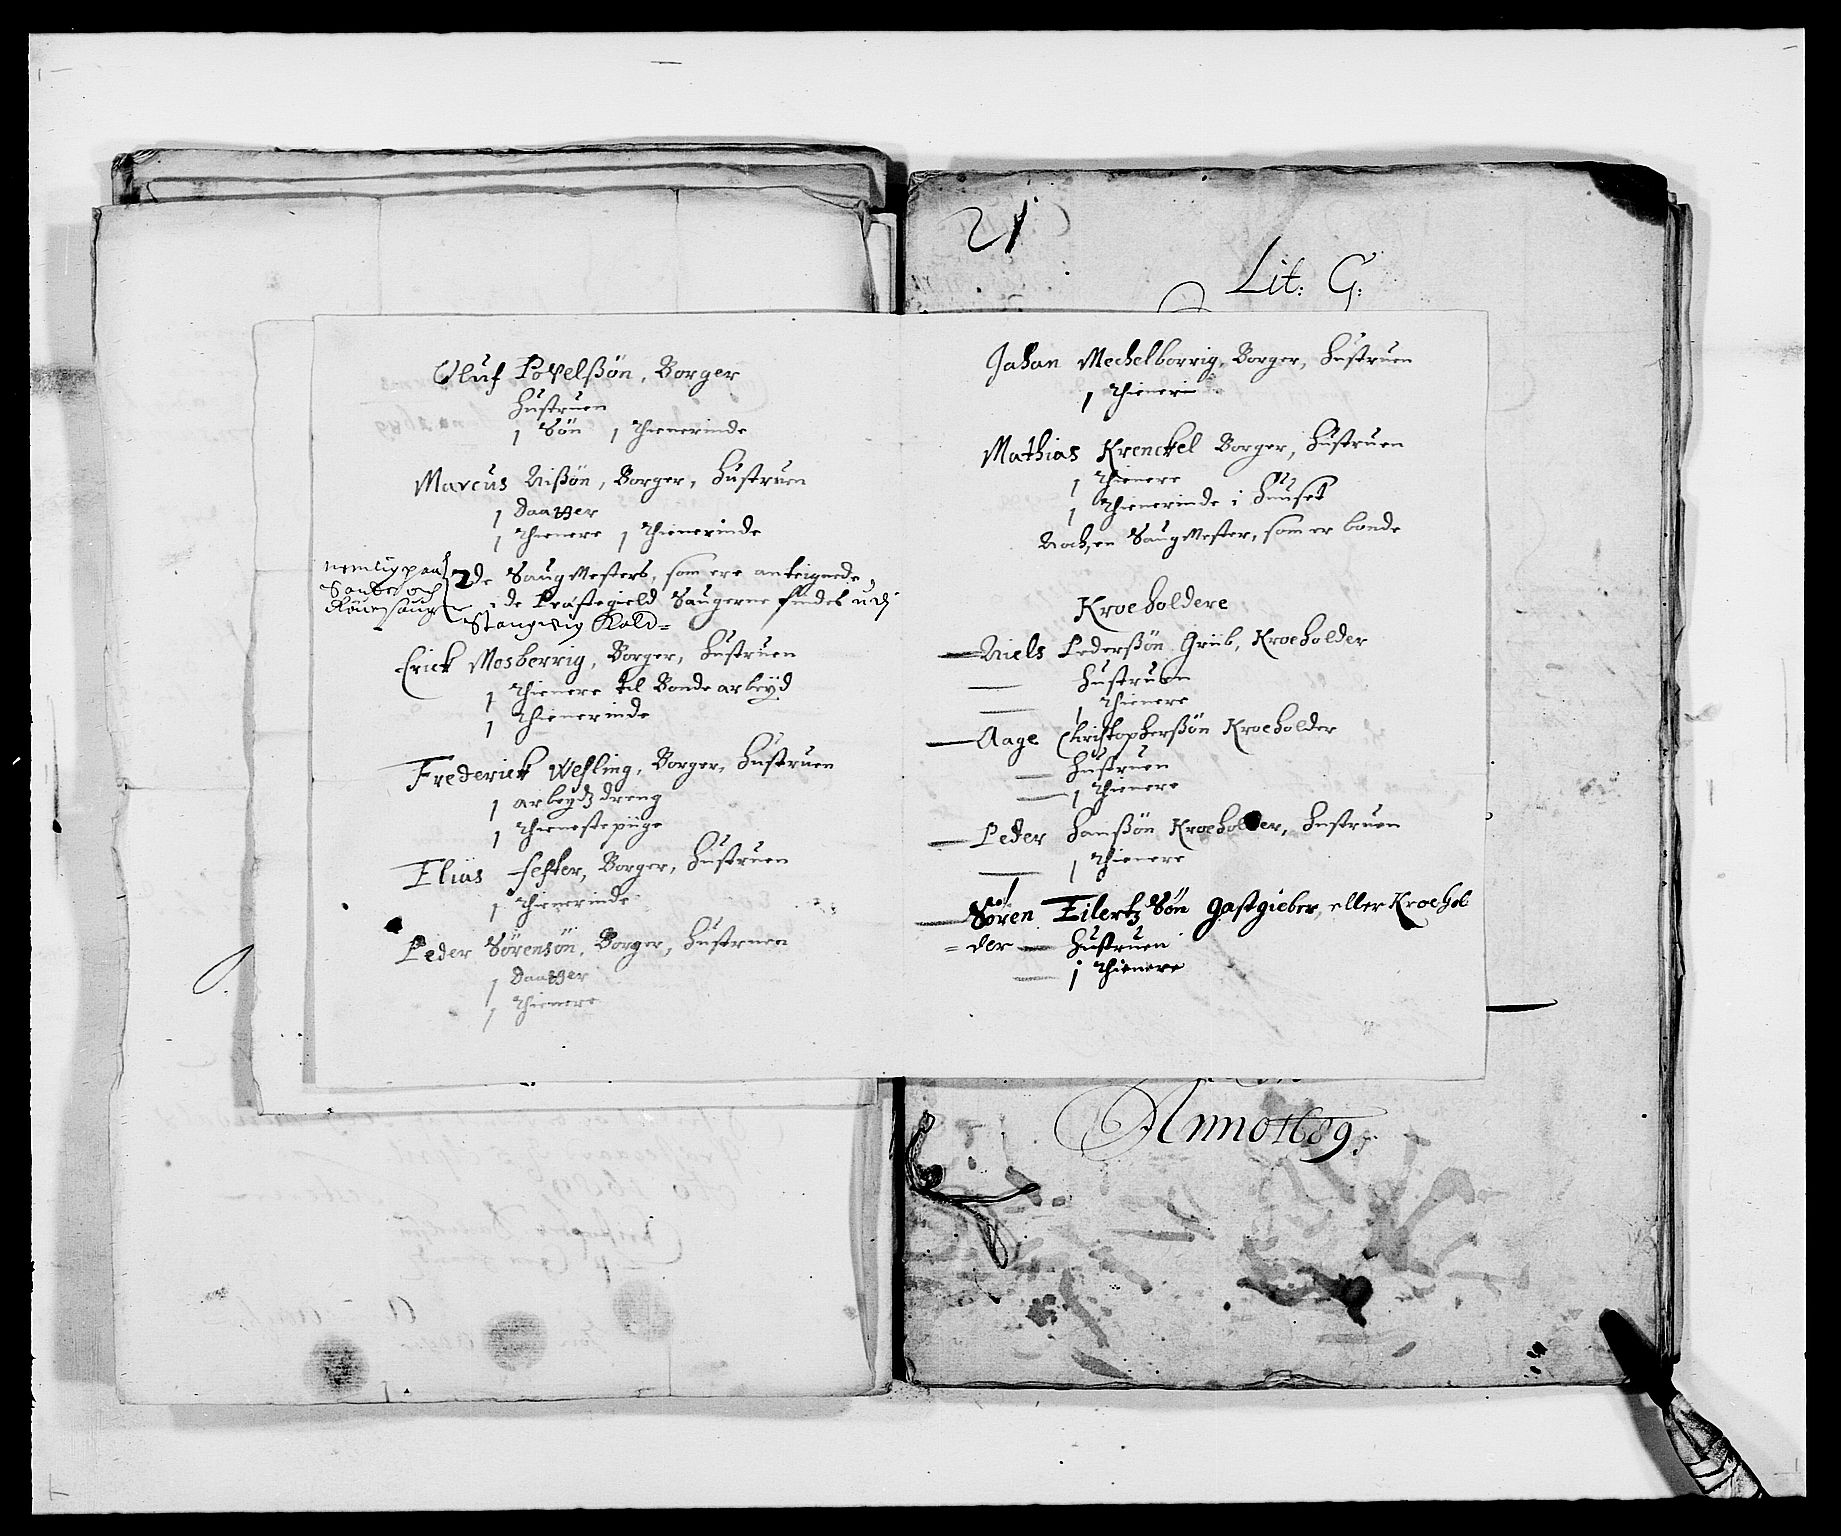 Oluf Povelßøn, Borger
Hustruen
1 Søn 1 Thienerinde
Marcus Nißøn, Borger, Hustruen
1 Daatter
1 Thienere 1 Thienerinde
nemlig paa
Sande och
saug
2de Saugmesters, som ere anteignede,
i de Præstegield Saugerne findes udj
Stangwiig Kald=
Erick Mosberrig, Borger, Hustruen
1 Thienere til Bonde arbeyd
1 Thienerinde
Frederick Wesling, Borger, Hustruen
1 arbeydz dreng
1 Thienistepiige
Elias Fester, Borger, Hustruen
1 Thienerinde
Peder Sørensøn, Borger, Hustruen
1 Daatter
1 Thienere
21
Lit: G:
Johan Mechelborrig, Borger, Hustruen
1 Thieneri
Mathias Krenckel Borger, Hustruen
1 Thienere
1 Thienerinde i Huuset
Noch, en Saugmester, som er bonde
Kroeholdere
Niels Pederßøn Griib, Kroeholder
Hustruen
1 Thienere
Aage Christopherßøn Kroeholder
Hustruen
1 Thienere
Peder Hanßøn Kroeholder, Hustruen
1 Thienere
Søren Eilertz Søn gastgieber, eller Kroehol
=der Hustruen
1 Thienere
Anno 1689